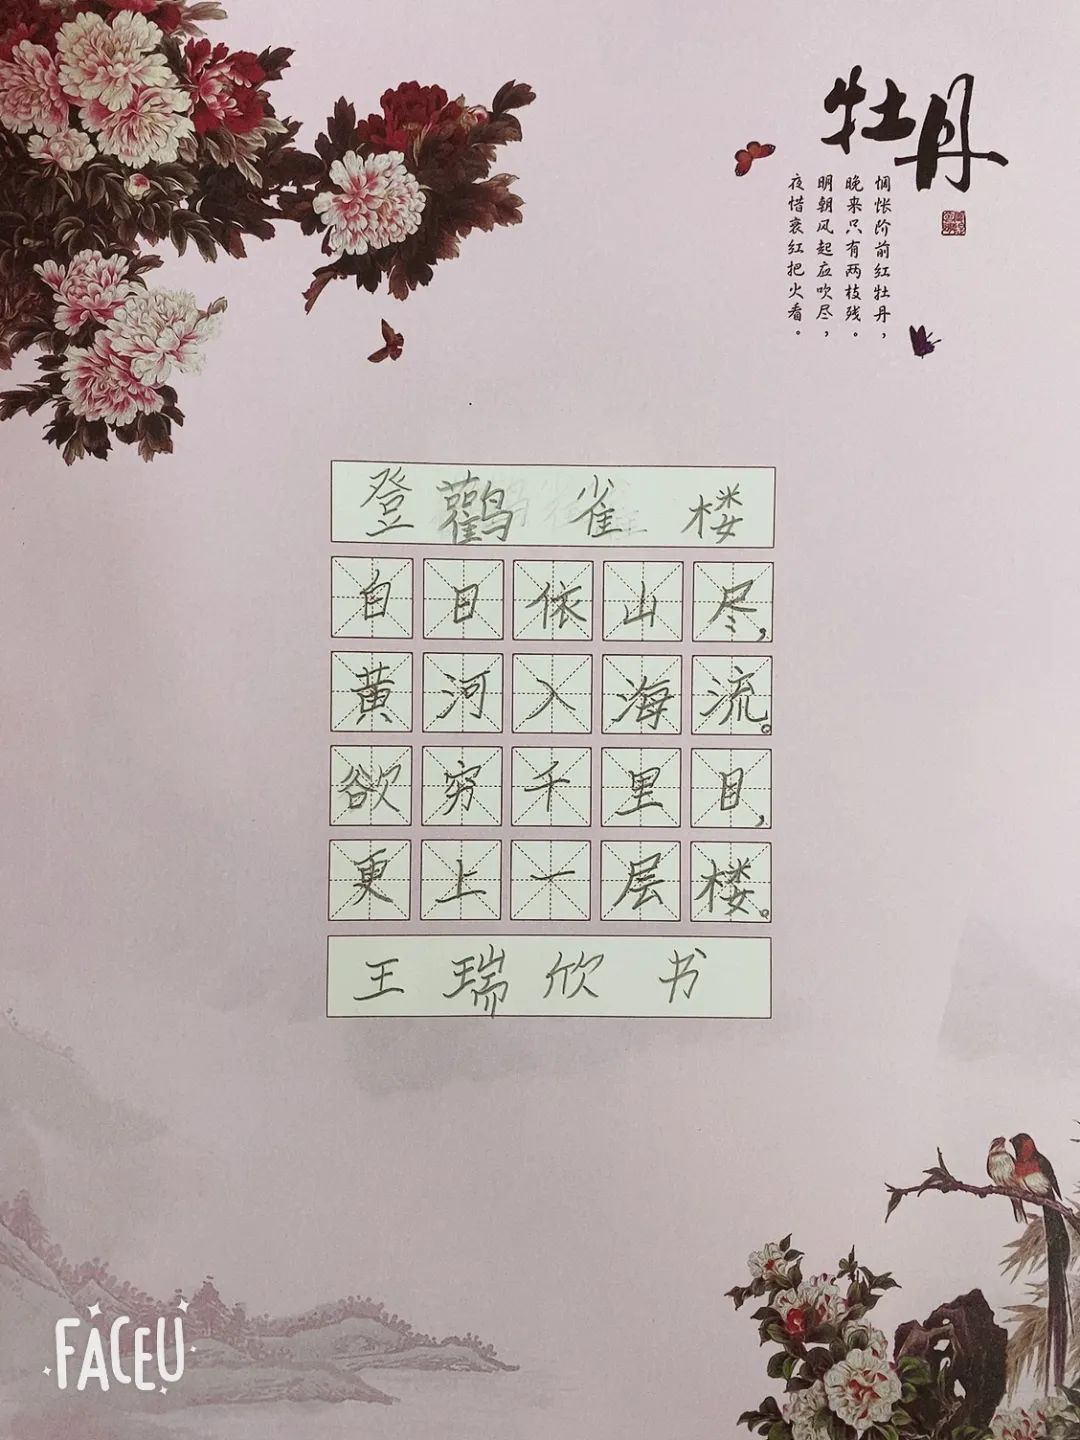 牡丹
惆怅阶前红牡丹，
晚来只有两枝残。
明朝风起应吹尽，
夜惜衰红把火看。
登鹳雀楼
自日依山尽，
黄河入海流。
欲穷千里目，
更上一层楼。
王瑞欣书
FACEU